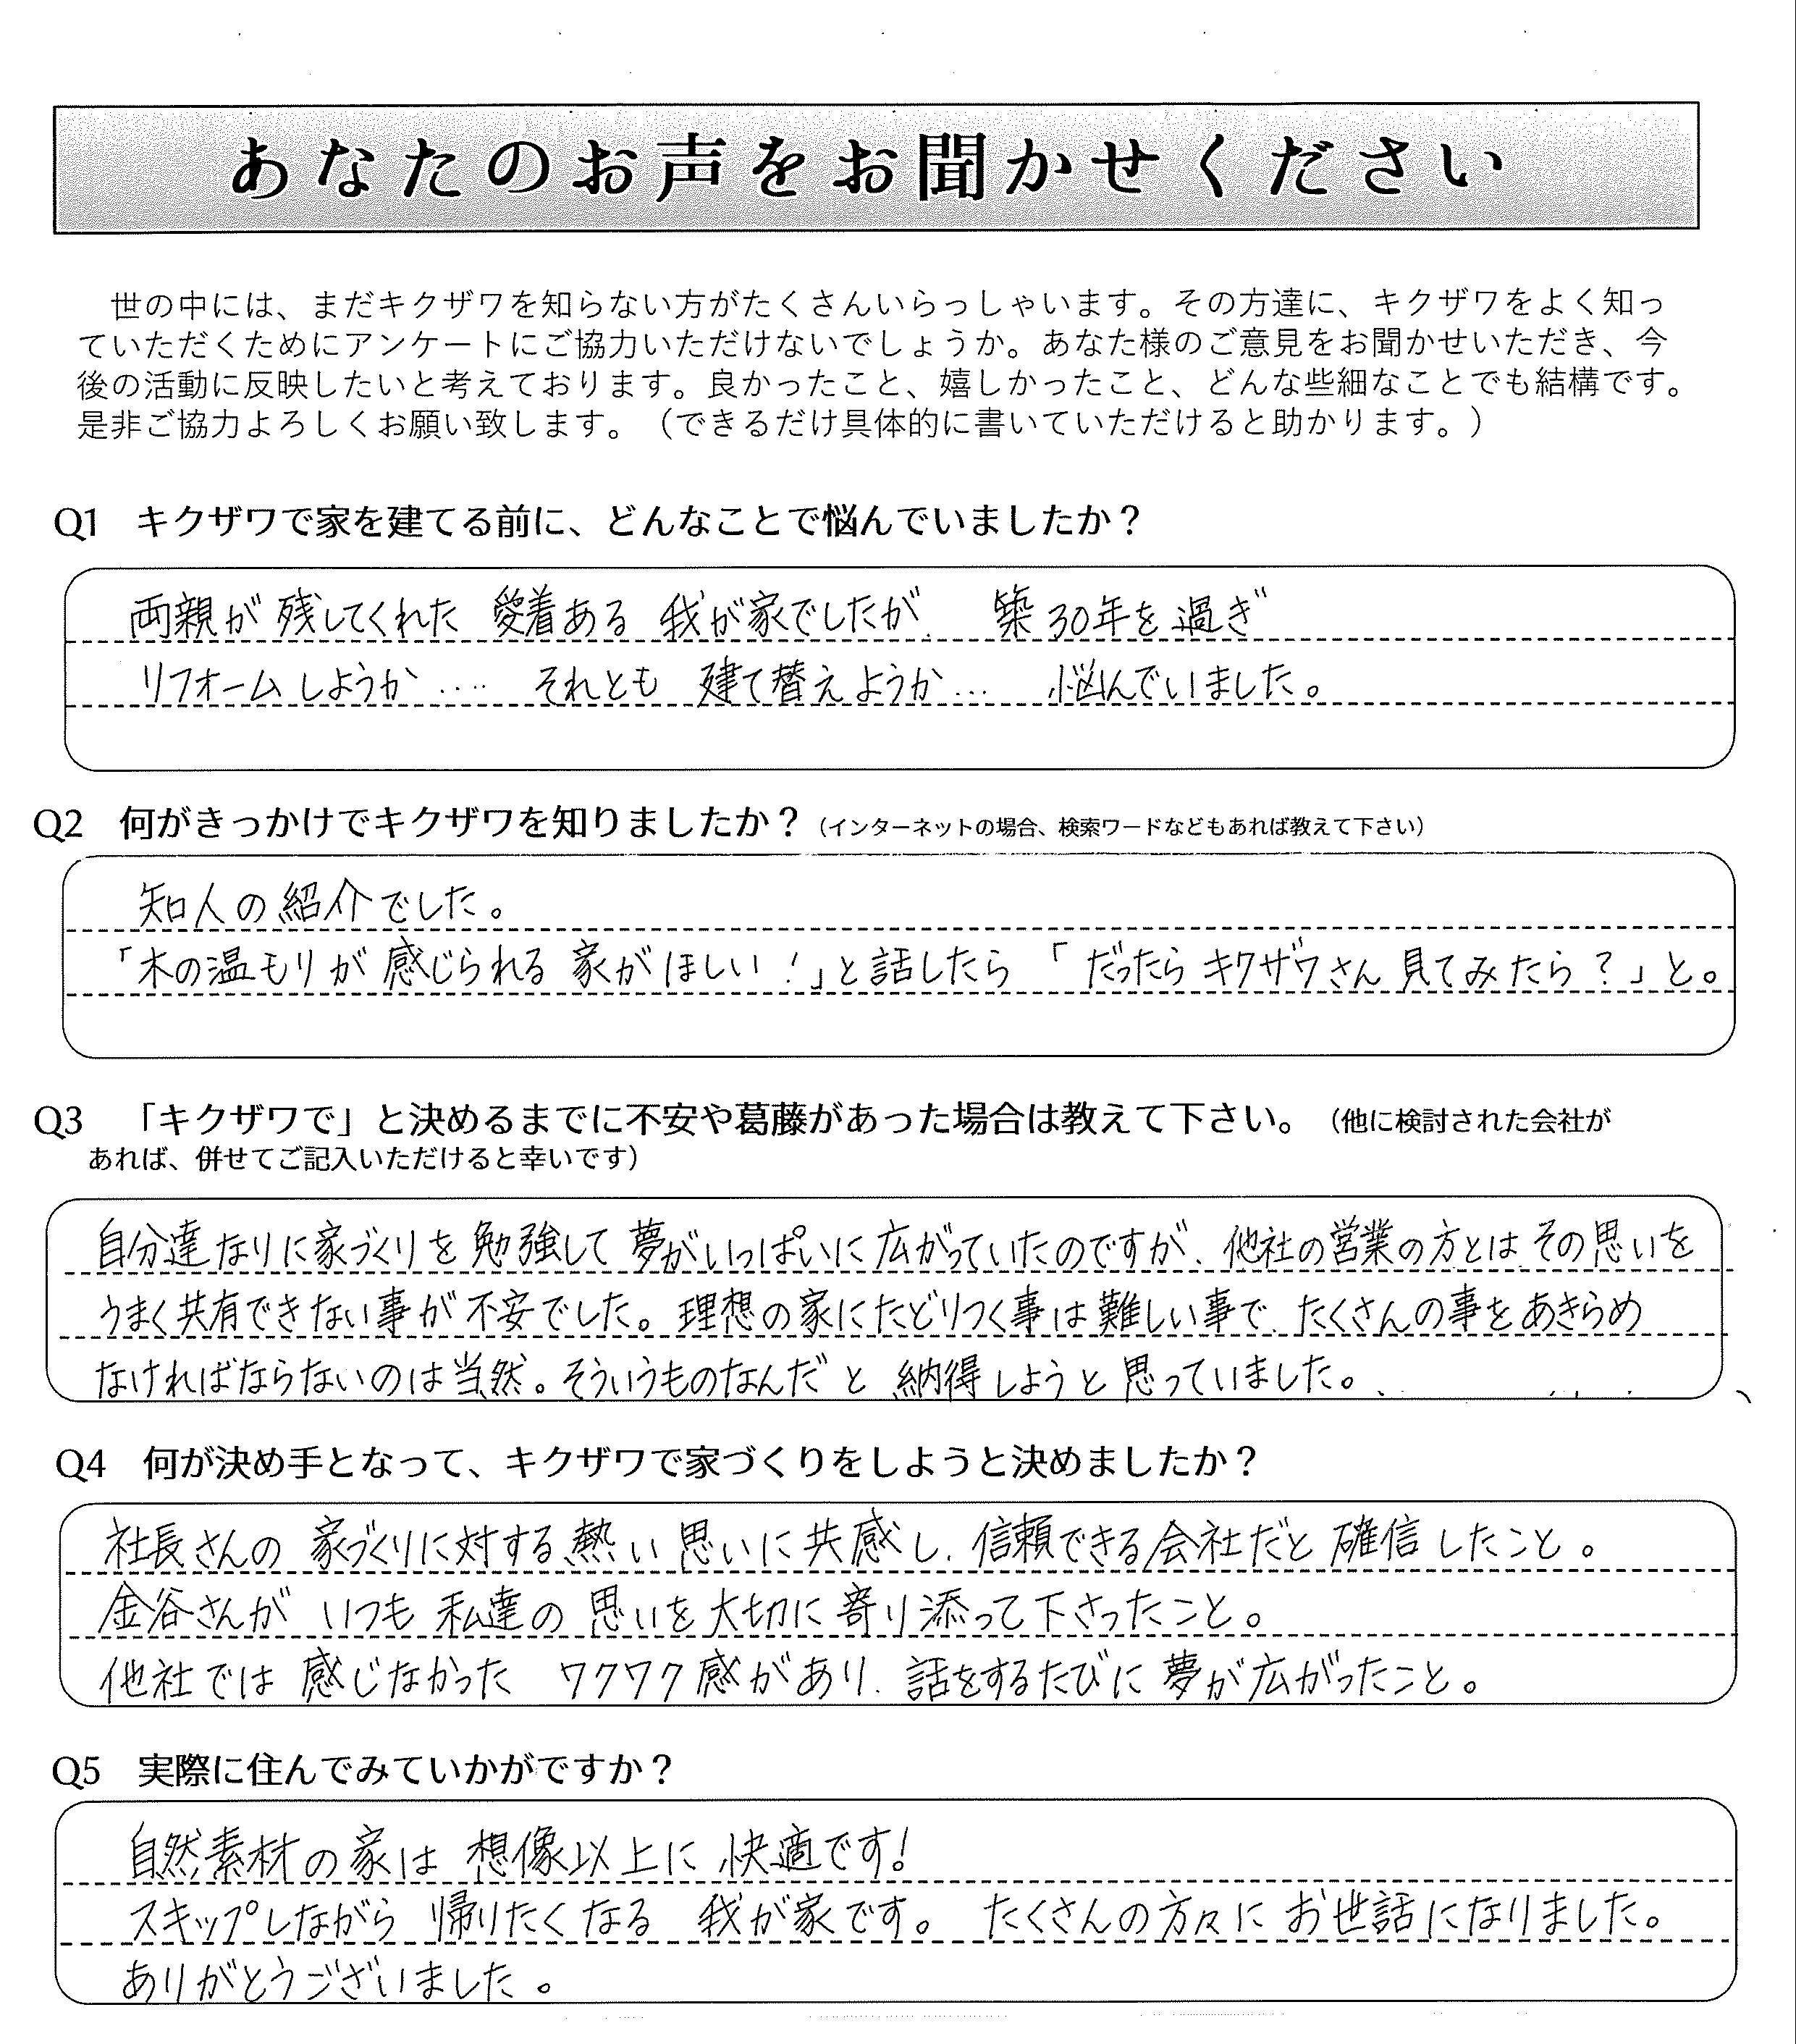 あなたのお声をお聞かせください
世の中には、まだキクザワを知らない方がたくさんいらっしゃいます。その方達に、キクザワをよく知っ
ていただくためにアンケートにご協力いただけないでしょうか。あなた様のご意見をお聞かせいただき、今
後の活動に反映したいと考えております。良かったこと、嬉しかったこと、どんな些細なことでも結構です。
是非ご協力よろしくお願い致します。（できるだけ具体的に書いていただけると助かります。）
Q1 キクザワで家を建てる前に、どんなことで悩んでいましたか？
両親が残してくれた 愛着ある 我が家でしたが、 築30年を過ぎ
リフォームしようか‥‥ それとも 建て替えようか… 悩んでいました。
Q2 何がきっかけでキクザワを知りましたか？（インターネットの場合、検索ワードなどもあれば教えて下さい）
知人の紹介でした。
「木の温もりが感じられる 家がほしい！」と話したら「だったらキクザワさん見てみたら？」と。
Q3 「キクザワで」と決めるまでに不安や葛藤があった場合は教えて下さい。（他に検討された会社が
あれば、併せてご記入いただけると幸いです）
自分達なりに家づくりを勉強して夢がいっぱいに広がっていたのですが、他社の営業の方とはその思いを
うまく共有できない事が不安でした。理想の家にたどりつく事は難しい事で、たくさんの事をあきらめ
なければならないのは当然。そういうものなんだと納得しようと思っていました。
Q4 何が決め手となって、キクザワで家づくりをしようと決めましたか？
社長さんの家づくりに対する熱い思いに共感し、信頼できる会社だと確信したこと。
金谷さんが いつも 私達の思いを大切に寄り添って下さったこと。
他社では感じなかった ワクワク感があり、話をするたびに夢が広がったこと。
Q5 実際に住んでみていかがですか？
自然素材の家は 想像以上に 快適です！
スキップしながら 帰りたくなる 我が家です。 たくさんの方々に お世話になりました。
ありがとうございました。